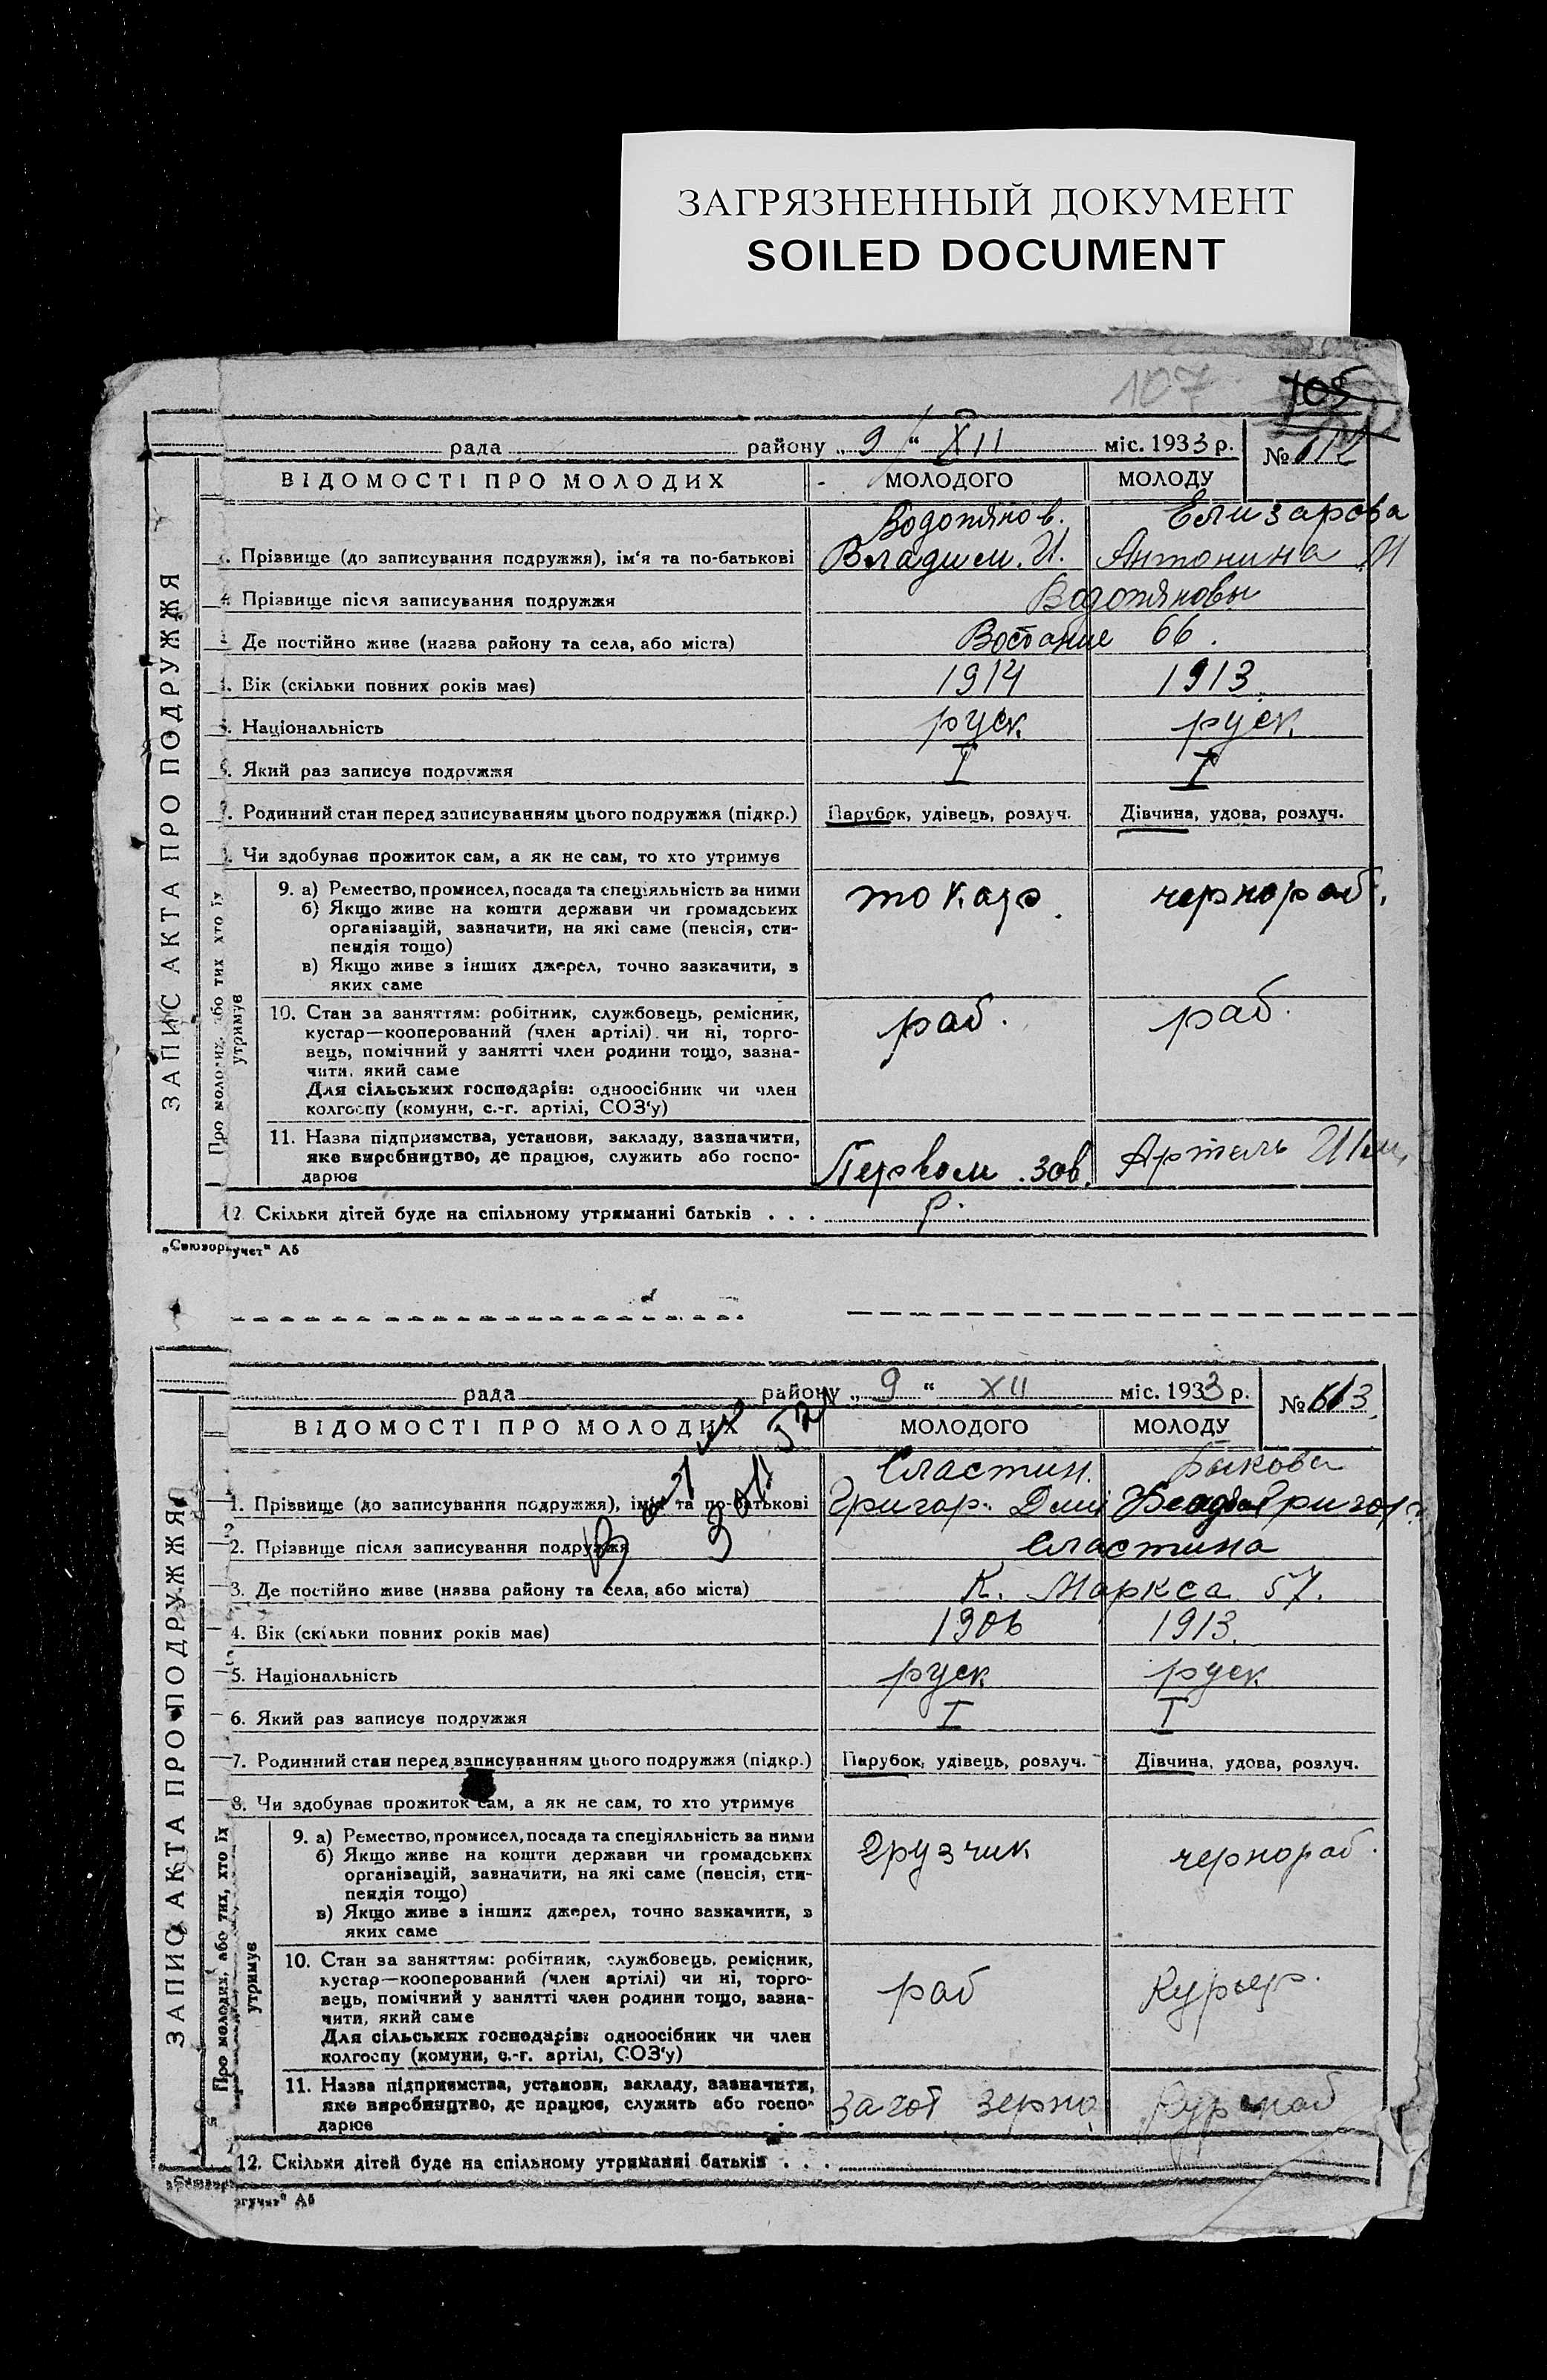 ЗАГРЯЗНЕННЫЙ ДОКУМЕНТ
SOILED DOCUMENT
107
105
рада района „ 9 “ XII міс. 1933 р. № 612
ВІДОМОСТІ ПРО МОЛОДИХ МОЛОДОГО МОЛОДУ
Водотянов. Елизарова
Прізвище (до записування подружжя), ім'я та по-батькові Владим. И. Антонина И
Прізвище після записування подружжя Водотяновы
Де постійно живе (назва району та села, або міста) Востание 66.
Вік (скільки повних років має) 1914 1913
Національність руск. руск.
Який раз записує подружжя I I
7. Родинний стан перед записуванням цього подружжя (підкр.) Парубок, удівець, розлуч. Дівчина, удова, розлуч.
Чи здобував прожиток сам, а як не сам, то хто утримує
9. а) Ремество, промисел, посада та спеціяльність за ними токар. чернораб.
б) Якщо живе на кошти держави чи громадських
організацій, зазначити, на які саме (пенсія, сти-
пендія тощо)
в) Якщо живе з інших джерел, точно зазначити, з
яких саме
10. Стан за заняттям: робітник, службовець, ремісник,
кустар—кооперований (член артілі) чи ні, торго- раб. раб.
вець, помічний у занятті член родини тощо, зазна-
чити, який саме
Для сільських господарів: одноосібник чи член
колгоспу (комуни, с.-г. артілі, СОЗ'у)
11. Назва підприємства, установи, закладу, зазначити,
яке виробництво, де працює, служить або госпо- Первом. зав. Артель
дарює
12 Скільки дітей буде на спільному утриманні батьків . . .
ЗАПИС АКТА ПРО ПОДРУЖЖЯ
Про молодих, або тих хто їх
утримує
„Союзоргучет“ Аб
рада району „ 9 “ XII міс. 1933 р. № 613
ВІДОМОСТІ ПРО МОЛОДИХ МОЛОДОГО МОЛОДУ
Сластин. Быкова
1. Прізвище (до записування подружжя), ім'я та по-батькові Григор. Дми Григор
2. Прізвище після записування подружжя Сластина
3. Де постійно живе (назва району та села, або міста) К. Маркса 57.
4. Вік (скільки повних років має) 1906 1913.
5. Національність руск руск
6. Який раз записує подружжя I I
7. Родинний стан перед записуванням цього подружжя (підкр.) Парубок, удівець, розлуч. Дівчина, удова, розлуч.
8. Чи здобував прожиток сам, а як не сам, то хто утримує
9. а) Ремество, промисел, посада та спеціяльність за ними Грузчик чернораб.
б) Якщо живе на кошти держави чи громадських
організацій, зазначити, на які саме (пенсія, сти-
пендія тощо)
в) Якщо живе з інших джерел, точно зазначити, з
яких саме
10. Стан за заняттям: робітник, службовець, ремісник,
кустар—кооперований (член артілі) чи ні, торго- раб Курьер.
вець, помічний у занятті член родини тощо, зазна-
чити, який саме
Для сільських господарів: одноосібник чи член
колгоспу (комуни, с.-г. артілі, СОЗ'у)
11. Назва підприємства, установи, закладу, зазначити,
яке виробництво, де працює, служить або госпо- Загот зерно
дарює
12. Скільки дітей буде на спільному утриманні батьків . . .
ЗАПИС АКТА ПРО ПОДРУЖЖЯ
Про молодих, або тих, хто їх
утримує